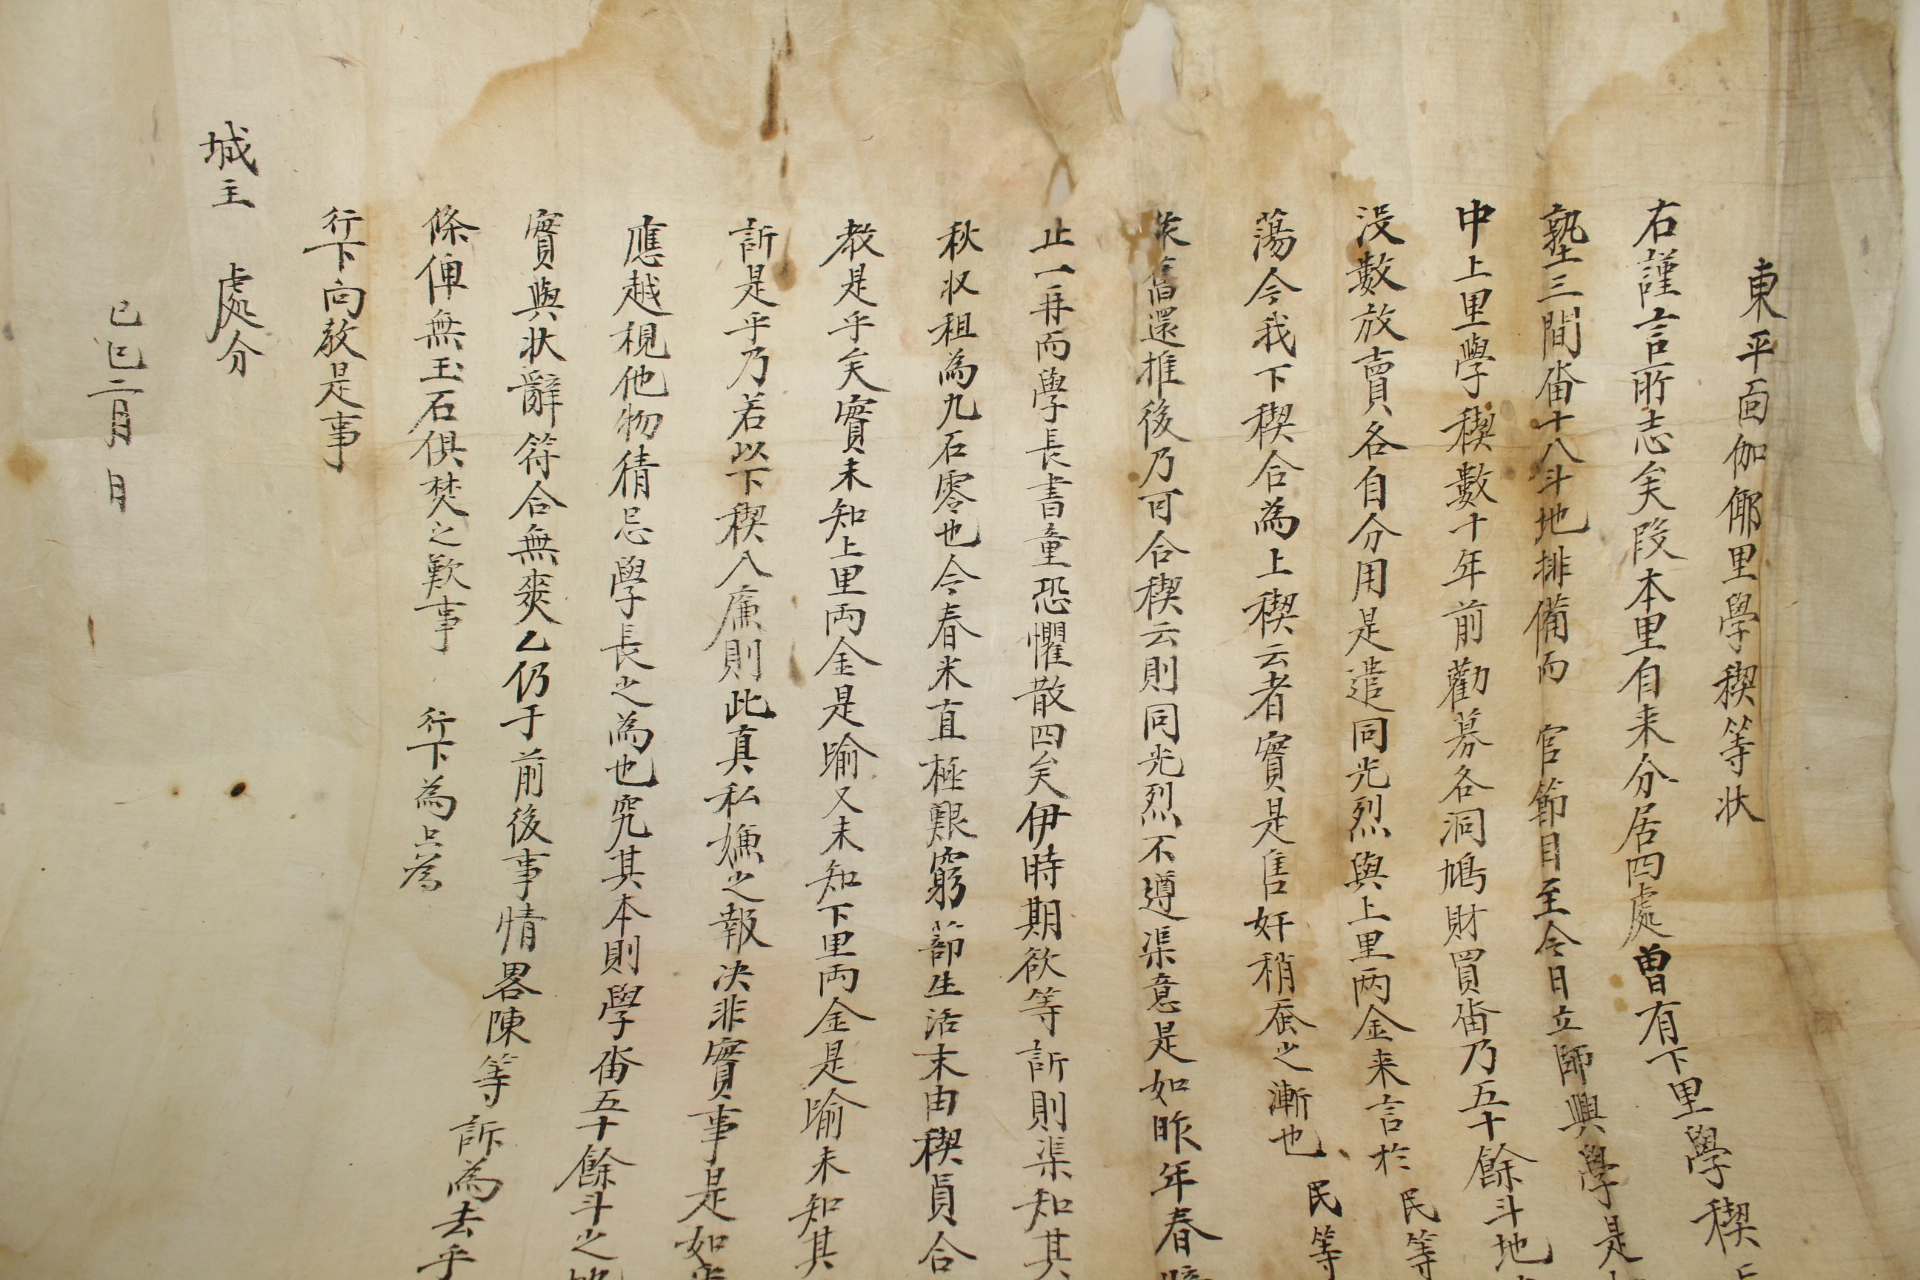 東平面伽倻里學稧等狀
右謹言所志矣段本里自来分居四處曾有下里學稧
塾三間畓十八斗地排備而 官節目至今日立師興學是
中上里學稧數十年前勸募各洞鳩財買畓乃五十餘斗地
沒數放賣各自分用是遣同光烈與上里兩金来言於 民等
蕩今我下稧合為上稧云者實是售奸稍蚕之漸也 民等
舊還推後乃可合稧云則同光烈不遵渠意是如昨年春
止一再而學長書童恐懼散四矣伊時期欲等訴則渠知其
秋收租為九石零也今春米直極艱窮蔀生活末由稧員合
教是乎矣實未知上里兩金是喻又未知下里兩金是喻未知其
訴是乎乃若以下稧入廉則此真私嫌之報决非實事是如
應越視他物猜忌學長之為也究其本則學畓五十餘斗之
實與狀辭符合無爽乙仍于前後事情畧陳等訴為去乎
條俾無玉石俱焚之歎事 行下為只為
行下向敎是事
城主 處分
己巳二月 日